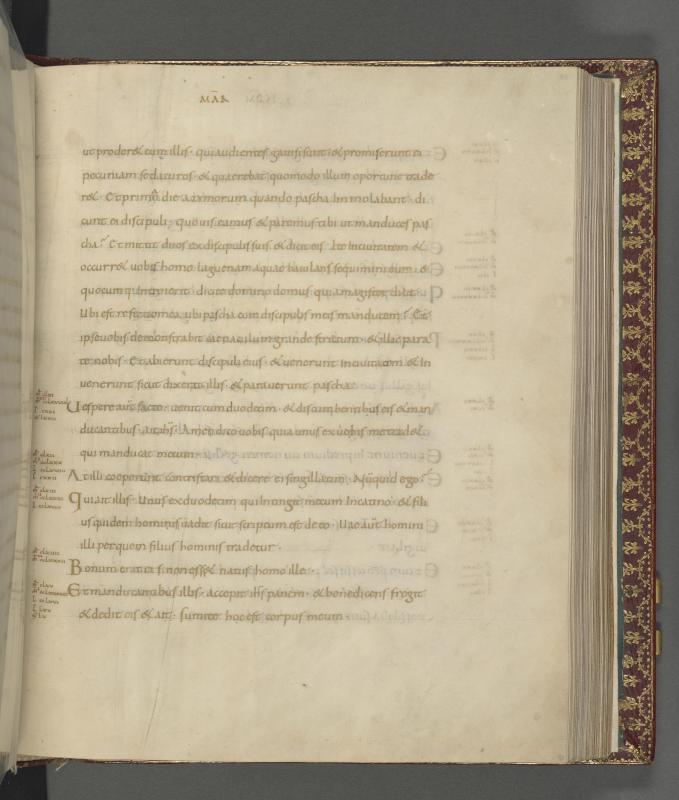 MAR
ut proderet eum illis · qui audientes gavisi sunt · & promiserunt ei
pecuniam se daturos · & quaerebat quomodo illum oportune trade
r&· Et primo die azymorum quando pascha immolabant · di
cunt ei discipuli · quo vis eamus & paremus tibi ut manduces pas
cha? Et mittit duos ex discipulis suis · & dicit eis · Ite in civitatem · &
occurr& vobis homo laguenam aquae baiulans sequimini eum · &
quocumque introierit · dicite domino domus · quia magister dicit ·
Ubi est refectio mea · ubi pascha cum discipulis meis manducem? Et
ipse vobis demonstrabit caenaculum grande stratum · & illic para
te nobis · Et abierunt discipuli eius · & venerunt in civitatem & in
venerunt sicut dixerat illis · & paraverunt pascha ·
Uespere aut facto · venit cum duodecim · & discumbentibus eis & man
ducantibus · ait ihs · Amen dico vobis quia unus ex vobis me trad&·
qui manducat mecum ·
At illi coeperunt contristari & dicere ei singillatim · Nuquid ego?
Qui ait illis · Unus ex duodecim qui intingit mecum in catino · & fili
us quidem hominis vadit sicut scriptum est de eo · Uae aut homini
illi per quem filius hominis tradetur ·
Bonum erat ei si non ess& natus homo ille ·
Et manducantibus illis · accepit ihs panem · & benedicens fregit
& dedit eis & ait · sumite hoc est corpus meum ·